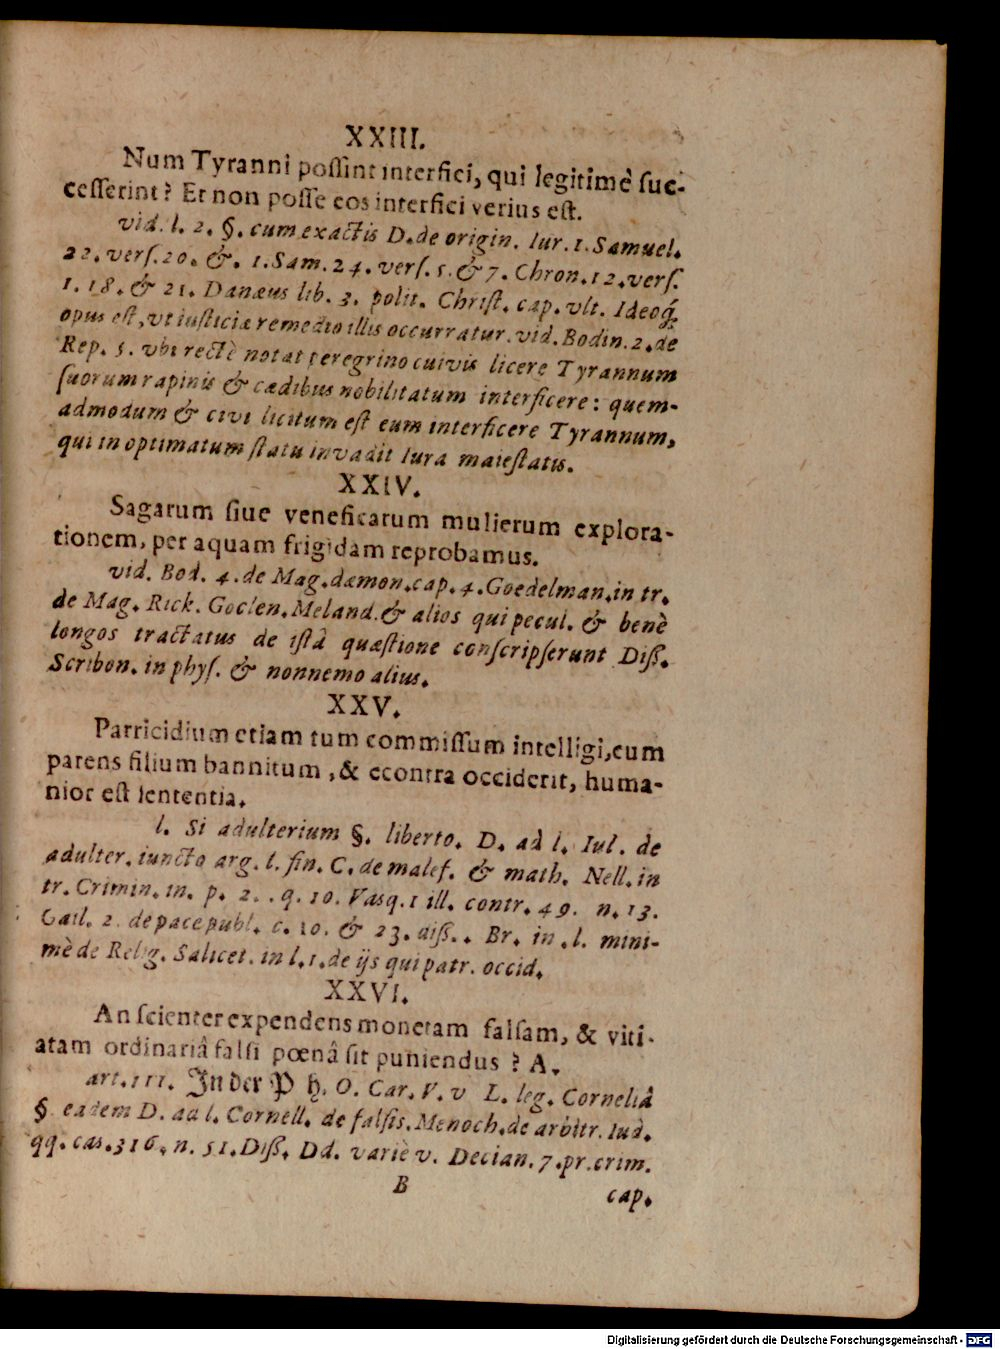 XXIII.
Num Tyranni poſſint interfici, qui legitimè ſuc-
ceſſerint? Et non poſſe eos interfici verius eſt.
vid. l. 2. §. cum exactis D. de origin. Iur. 1. Samuel.
22. verſ. 20. &. 1. Sam. 24. verſ. 5. & 7. Chron. 12. verſ.
1. 18. & 21. Danæus lib. 3. polit. Chriſt. cap. vlt. Ideoq́;
opus eſt, vt iuſticiæ remedio illis occurratur. vid. Bodin. 2. de
Rep. 5. vbi rectè notat peregrino cuivis licere Tyrannum
ſuorum rapinis & cædibus nobilitatum interficere: quem-
admodum & civi licitum eſt eum interficere Tyrannum,
qui in optimatum ſtatu invadit Iura maieſtatis.
XXIV.
Sagarum ſiue veneficarum mulierum explora-
tionem, per aquam frigidam reprobamus.
vid. Bod. 4. de Mag. dæmon. cap. 4. Goedelman. in tr.
de Mag. Rick. Goclen. Meland. & alios qui pecul. & benè
longos tractatus de iſtâ quæſtione conſcripſerunt Diſſ.
Scribon. in phyſ. & nonnemo alius.
XXV.
Parricidium etiam tum commiſſum intelligi, cum
parens filium bannitum, & econtra occiderit, huma-
nior eſt ſententia.
l. Si adulterium §. liberto. D. ad l. Iul. de
adulter. iuncto arg. l. fin. C. de malef. & math. Nell. in
tr. Crimin. in. p. 2. . q. 10. Vasq. 1 ill. contr. 49. n. 13.
Gail. 2. de pace publ. c. 10. & 23. diſſ. . Br. in . l. mini-
mè de Relig. Salicet. in l. 1. de ijs qui patr. occid.
XXVI.
An ſcienter expendens monetam falſam, & viti-
atam ordinariâ falſi pœnâ ſit puniendus? A.
art. 111. In der P. H. O. Car. V. v L. leg. Corneliâ
§ eadem D. ad l. Cornell. de falſis. Menoch. de arbitr. Iud.
qq. cas. 316. n. 51. Diſſ. Dd. variè v. Decian. 7. pr. crim.
B
cap.
Digitalisierung gefördert durch die Deutsche Forschungsgemeinschaft - DFG